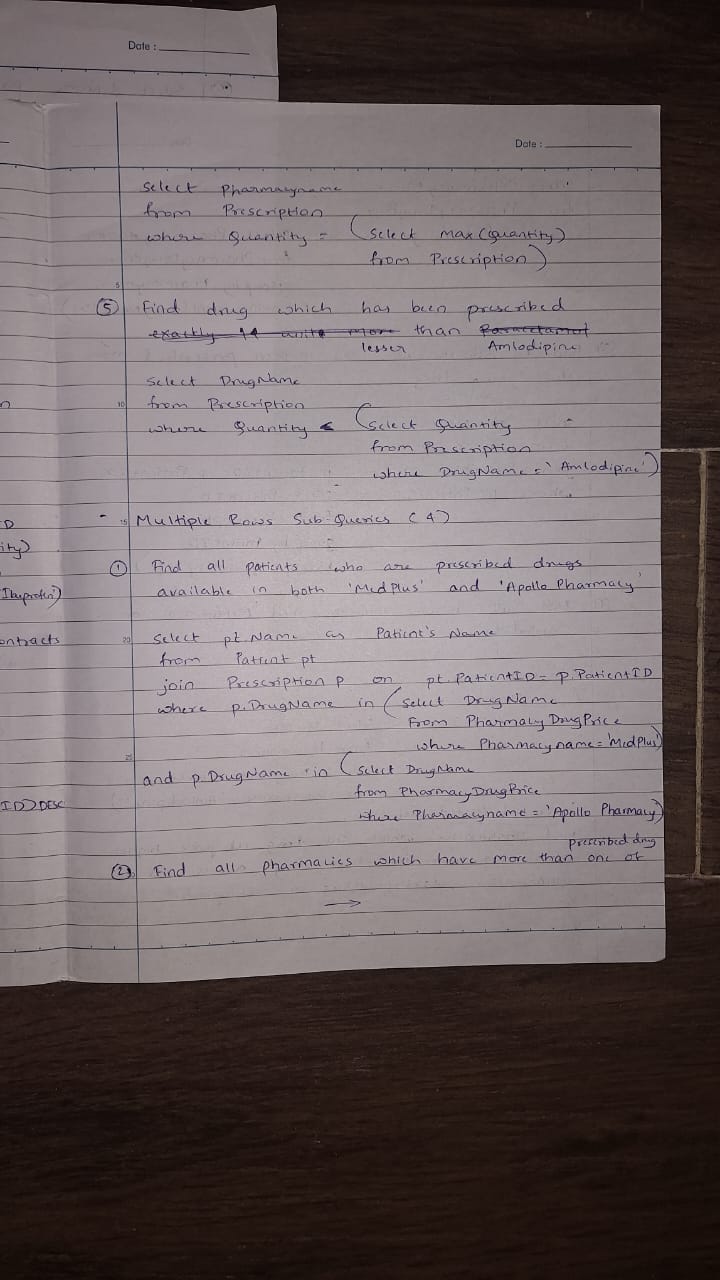 Date :
Date :
Select Pharmacyname
from Prescription
where Quantity = (Select max(Quantity)
from Prescription)
5
⑤ Find drug which has been prescribed
exactly 14 units more than Paracetamol
lesser Amlodipine
Select DrugName
10 from Prescription
where Quantity < (Select Quantity
from Prescription
where DrugName = 'Amlodipine')
15 - Multiple Rows Sub-Queries (4)
① Find all patients who are prescribed drugs
available in both 'MedPlus' and 'Apollo Pharmacy'
20 Select pt.Name as Patient's Name
from Patient pt
join Prescription p on pt.PatientID = p.PatientID
where p.DrugName in (Select DrugName
From PharmacyDrugPrice
where Pharmacyname = 'MedPlus')
25
and p.DrugName in (Select DrugName
from PharmacyDrugPrice
where Pharmacyname = 'Apollo Pharmacy)
prescribed drug
② Find all pharmacies which have more than one of
→
n
D
ity)
Ibuprofen')
ontracts
ID)DESC